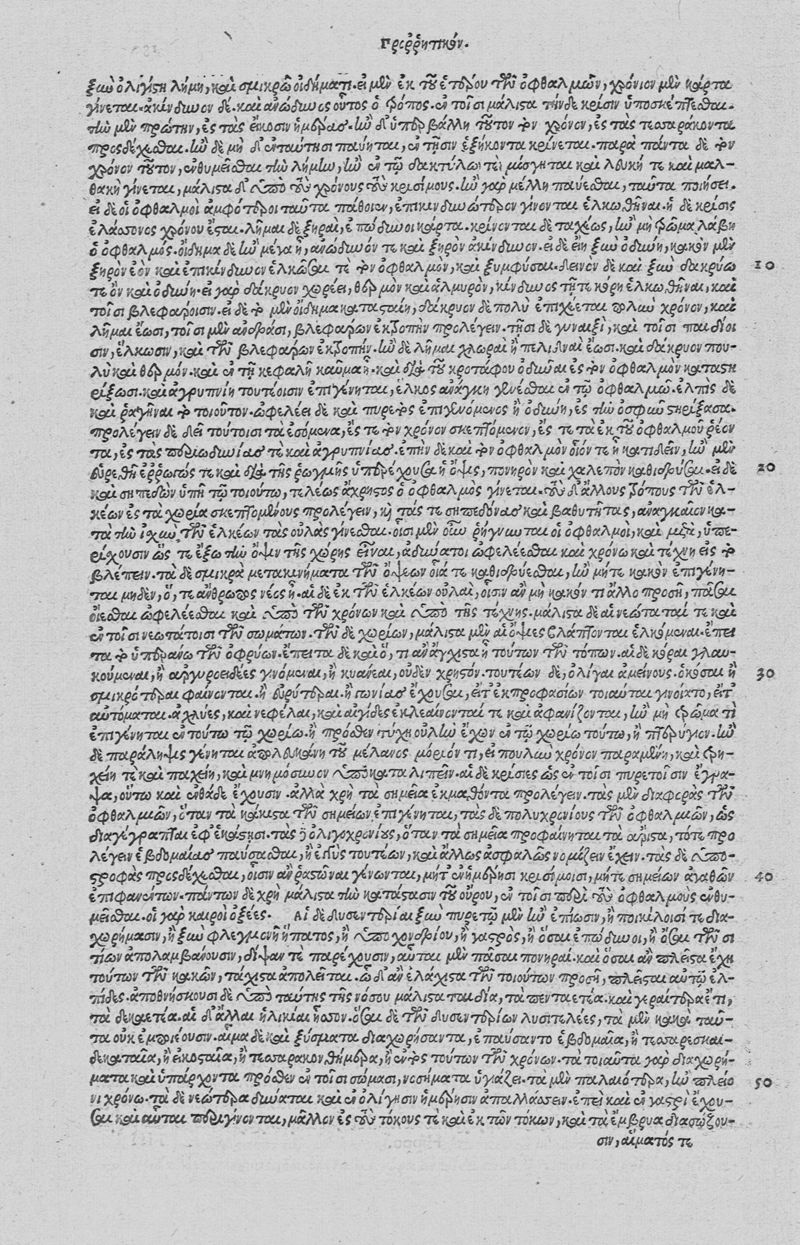 Προῤῥητικόν.
ξὺν ὀλίγῃ λήμῃ, καὶ σμικρῷ οἰδήματι. εἰ μὲν ἐκ τοῦ ἑτέρου τῶν ὀφθαλμῶν, χρόνιον μὲν κάρτα
γίνεται. ἀκίνδυνον δέ. καὶ ἀνώδυνος οὗτος ὁ τρόπος. ἐν τοῖσι μάλιστα τήνδε κρίσιν ὑποσκέπτεσθαι.
τὴν μὲν πρώτην, ἐς τὰς εἴκοσιν ἡμέρας. ἢν δ' ὑπερβάλλῃ τοῦτον τὸν χρόνον, ἐς τὰς τεσσαράκοντα
προσδέχεσθαι. ἢν δὲ μὴ δ' ἐν ταύτῃσι παύηται, ἐν τῇσιν ἑξήκοντα κρίνεται. παρὰ πάντα δὲ τὸν
χρόνον τοῦτον, ἐνθυμεῖσθαι τὴν λήμην, ἢν ἐν τῷ δακρύῳ τε μίσγηται καὶ λευκή τε καὶ μαλ-
θακὴ γίνεται, μάλιστα δ' ὑπὸ τοὺς χρόνους τοὺς κρισίμους. ἢν γὰρ μέλλῃ παύεσθαι, ταῦτα ποιήσει.
εἰ δὲ οἱ ὀφθαλμοὶ ἀμφότεροι ταῦτα πάθοιεν, ἐπικινδυνώτερον γίνονται ἑλκωθῆναι. ἡ δὲ κρίσις
ἐλάσσονος χρόνου ἔσται. λῆμαι δὲ ξηραὶ, ἐπώδυνοι κάρτα. κρίνονται δὲ ταχέως, ἢν μὴ τρῶμα λάβῃ
ὁ ὀφθαλμός. οἴδημα δὲ ἢν μέγα ᾖ, ἀνώδυνόν τε καὶ ξηρὸν ἀκίνδυνον. εἰ δὲ εἴη ξὺν ὀδύνῃ, κακὸν μὲν
ξηρὸν ἐὸν καὶ ἐπικίνδυνον ἑλκῶσαι τε τὸν ὀφθαλμὸν, καὶ ξυμφύσαι. δεινὸν δὲ καὶ ξὺν δακρύῳ 10
τε ὂν καὶ ὀδύνῃ. εἰ γὰρ δάκρυον χωρέει, θερμὸν καὶ ἁλμυρὸν, κίνδυνος τῇ τε κόρῃ ἑλκωθῆναι, καὶ
τοῖσι βλεφάροισιν. εἰ δὲ τὸ μὲν οἴδημα κατασταίη, δάκρυον δὲ πολὺ ἐπιχέεται πολὺν χρόνον, καὶ
λῆμαι ἔωσι, τοῖσι μὲν ἀνδράσι, βλεφάρων ἐκτροπὴν προλέγειν. τῇσι δὲ γυναιξὶ, καὶ τοῖσι παιδίοι
σιν, ἕλκωσιν, καὶ τῶν βλεφάρων ἐκτροπήν. ἢν δὲ λῆμαι χλωραὶ ἢ πελιδναὶ ἔωσι. καὶ δάκρυον που-
λὺ καὶ θερμὸν. καὶ ἐν τῇ κεφαλῇ καῦμα ᾖ. καὶ διὰ τοῦ κροτάφου ὀδύναι ἐς τὸν ὀφθαλμὸν καταστη
ρίξωσι. καὶ ἀγρυπνίη τουτέοισιν ἐπιγένηται, ἕλκος ἀνάγκη γενέσθαι ἐν τῷ ὀφθαλμῷ. ἐλπὶς δὲ
καὶ ῥαγῆναι τὸ τοιοῦτον. ὠφελέει δὲ καὶ πυρετὸς ἐπιγενόμενος ἢ ὀδύνη, ἐς τὴν ὀσφὺν στηρίξασα.
προλέγειν δὲ δεῖ τούτοισι τὰ ἐσόμενα, ἔς τε τὸν χρόνον σκεπτόμενον, ἔς τε τὰ ἐκ τοῦ ὀφθαλμοῦ ῥέον
τα, ἐς τὰς περιωδυνίας τε καὶ ἀγρυπνίας. ἐπὴν δὲ καὶ τὸν ὀφθαλμὸν οἷόν τε ᾖ κατιδεῖν, ἢν μὲν
εὑρεθῇ ἐῤῥωγώς τε καὶ διὰ τῆς ῥωγμῆς ὑπερέχουσα ἡ ὄψις, πονηρὸν καὶ χαλεπὸν καθιδρῦσαι. εἰ δὲ 20
καὶ σηπεδὼν ὑπῇ τῷ τοιούτῳ, τελέως ἄχρηστος ὁ ὀφθαλμὸς γίνεται. τοὺς δ' ἄλλους τρόπους τῶν ἑλ-
κέων ἐς τὰ χωρία σκεπτομένους προλέγειν, ἢ τάς τε σηπεδόνας καὶ βαθυτῆτας, ἀναγκαῖον κα-
τὰ τὴν ἰσχὺν τῶν ἑλκέων τὰς οὐλὰς γίνεσθαι. οἷσι μὲν οὖν ῥήγνυνται οἱ ὀφθαλμοὶ, καὶ μέγα, ὑπε-
ρίσχουσιν ὥς τε ἔξω τὴν ὄψιν τῆς χώρης εἶναι, ἀδύνατοι ὠφελέεσθαι καὶ χρόνῳ καὶ τέχνῃ εἰς τὸ
βλέπειν. τὰ δὲ σμικρὰ μετακινήματα τῶν ὄψεων οἷά τε καθιδρύεσθαι, ἢν μήτε κακὸν ἐπιγένη-
ται μηδὲν, ὅ, τε ἄνθρωπος νέος ᾖ. αἱ δὲ ἐκ τῶν ἑλκέων οὐλαὶ, οἷσιν ἂν μὴ κακὸν τι ἄλλο προσῇ, πᾶσαι
οἷαί τε ὠφελέεσθαι καὶ ὑπὸ τῶν χρόνων καὶ ὑπὸ τῆς τέχνης. μάλιστα δὲ αἱ νεώταταί τε καὶ
ἐν τοῖσι νεωτάτοισι τῶν σωμάτων. τῶν δὲ χωρίων, μάλιστα μὲν αἱ ὄψιες βλάπτονται ἑλκόμεναι. ἔπει
τα τὸ ὑπεράνω τῶν ὀφρύων. ἔπειτα δὲ καὶ ὅ, τι ἂν ἄγχιστα ᾖ τούτων τῶν τόπων. αἱ δὲ κόραι γλαυ-
κούμεναι, ἢ ἀργυροειδέες γινόμεναι, ἢ κυάνεαι, οὐδὲν χρηστόν. τουτέων δὲ, ὀλίγαι ἀμείνους. ὁκόσαι ἢ 30
σμικρότεραι φαίνονται. ἢ εὐρύτεραι. ἢ γωνίας ἔχουσαι, εἴτ' ἐκ προφασίων τοιαῦται γενοίατο, εἴτ'
αὐτόμαται. ἀχλύες, καὶ νεφέλαι, καὶ αἰγίδες ἐκλεαίνονταί τε καὶ ἀφανίζονται, ἢν μὴ τρῶμα τι
ἐπιγένηται ἐν τούτῳ τῷ χωρίῳ. ἢ πρόσθεν τύχῃ οὐλὴν ἔχων ἐν τῷ χωρίῳ τούτῳ, ἢ πτερύγιον. ἢν
δὲ παράληψις γένηται ἀπολευκαίνῃ τοῦ μέλανος μόριόν τι, εἰ πουλὺν χρόνον παραμένῃ, καὶ τρη-
χείη τε καὶ παχείη, καὶ μνημόσυνον ὑποκαταλιπεῖν. αἱ δὲ κρίσιες ὡς ἐν τοῖσι πυρετοῖσιν ἔγρα-
ψα, οὕτω καὶ ἐνθάδε ἔχουσιν. ἀλλὰ χρὴ τὰ σημεῖα ἐκμαθόντα προλέγειν. τὰς μὲν διαφορὰς τῶν
ὀφθαλμιῶν, ὅταν τὰ κάκιστα τῶν σημείων ἐπιγένηται, τὰς δὲ πολυχρονίους τῶν ὀφθαλμιῶν, ὡς
διαγέγραπται ἐφ' ἑκάστῃσι. τὰς δ' ὀλιγοχρονίους, ὅταν τὰ σημεῖα προφαίνηται τὰ ἄριστα, τότε προ
λέγειν ἑβδομαίας παύσασθαι, ἢ ἐγγὺς τουτέων, καὶ ἄλλως ἀσφαλῶς νομίζειν ἔχειν. τὰς δὲ ὑπο-
στροφὰς προσδέχεσθαι, οἷσιν ἂν ῥᾳστῶναι γένωνται, μήτ' ἐν ἡμέρῃσι κρισίμοισι, μήτε σημείων ἀγαθῶν 40
ἐπιφανέντων. πάντων δὲ χρὴ μάλιστα τὴν κατάστασιν τοῦ οὔρου, ἐν τοῖσι περὶ τοὺς ὀφθαλμοὺς ἐνθυ-
μεῖσθαι. οἱ γὰρ καιροὶ ὀξέες. Αἱ δὲ δυσεντερίαι ξὺν πυρετῷ μὲν ἢν ἐπίωσιν, ἢ ποικίλοισί τε δια-
χωρήμασιν, ἢ ξὺν φλεγμονῇ ἥπατος, ἢ ὑποχονδρίου, ἢ γαστρὸς, ἢ ὅσαι ἐπώδυνοι, ἢ ὅσαι τῶν σι
τίων ἀπολαμβάνουσιν, δίψαν τε παρέχουσιν, αὗται μὲν πᾶσαι πονηραί. καὶ ὃς ἂν πλεῖστα ἔχῃ
τούτων τῶν κακῶν, τάχιστα ἀπολεῖται. ᾧ δ' ἂν ἐλάχιστα τῶν τοιούτων προσῇ, πλεῖσται αὐτῷ ἐλ-
πίδες. ἀποθνήσκουσι δὲ ὑπὸ ταύτης τῆς νόσου μάλιστα παιδία, τὰ πενταετέα. καὶ γεραίτερα ἔτι,
τὰ δεκαετέα. αἱ δ' ἄλλαι ἡλικίαι ἧσσον. ὅσαι δὲ τῶν δυσεντερίων λυσιτελέες, τὰ μὲν κακὰ ταῦ-
τα οὐκ ἐμποιέουσιν. αἷμα δὲ καὶ ξύσματα διαχωρήσαντα, ἐπαύσαντο ἑβδομαῖα, ἢ τεσσαρεσκαι-
δεκαταῖα, ἢ εἰκοσταῖα, ἢ τεσσαρακονθήμερα, ἢ ἐντὸς τούτων τῶν χρόνων. τὰ τοιαῦτα γὰρ διαχωρή-
ματα καὶ ὑπάρχοντα πρόσθεν ἐν τοῖσι σώμασι, νοσήματα ὑγιάζει. τὰ μὲν παλαιότερα, ἢν πλείο 50
νι χρόνῳ. τὰ δὲ νεώτερα δύναται καὶ ἐν ὀλίγῃσιν ἡμέρῃσιν ἀπαλλάσσειν. ἐπεὶ καὶ ἐν γαστρὶ ἔχου-
σαι καὶ αὗται περιγίνονται, μᾶλλον ἐς τοὺς τόκους τε καὶ ἐκ τῶν τόκων, καὶ τὰ ἔμβρυα διασώζου-
σιν, αἵματός τε